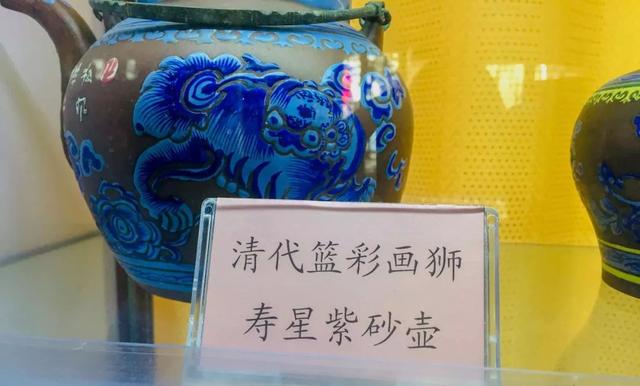 清代篮彩画狮
寿星紫砂壶